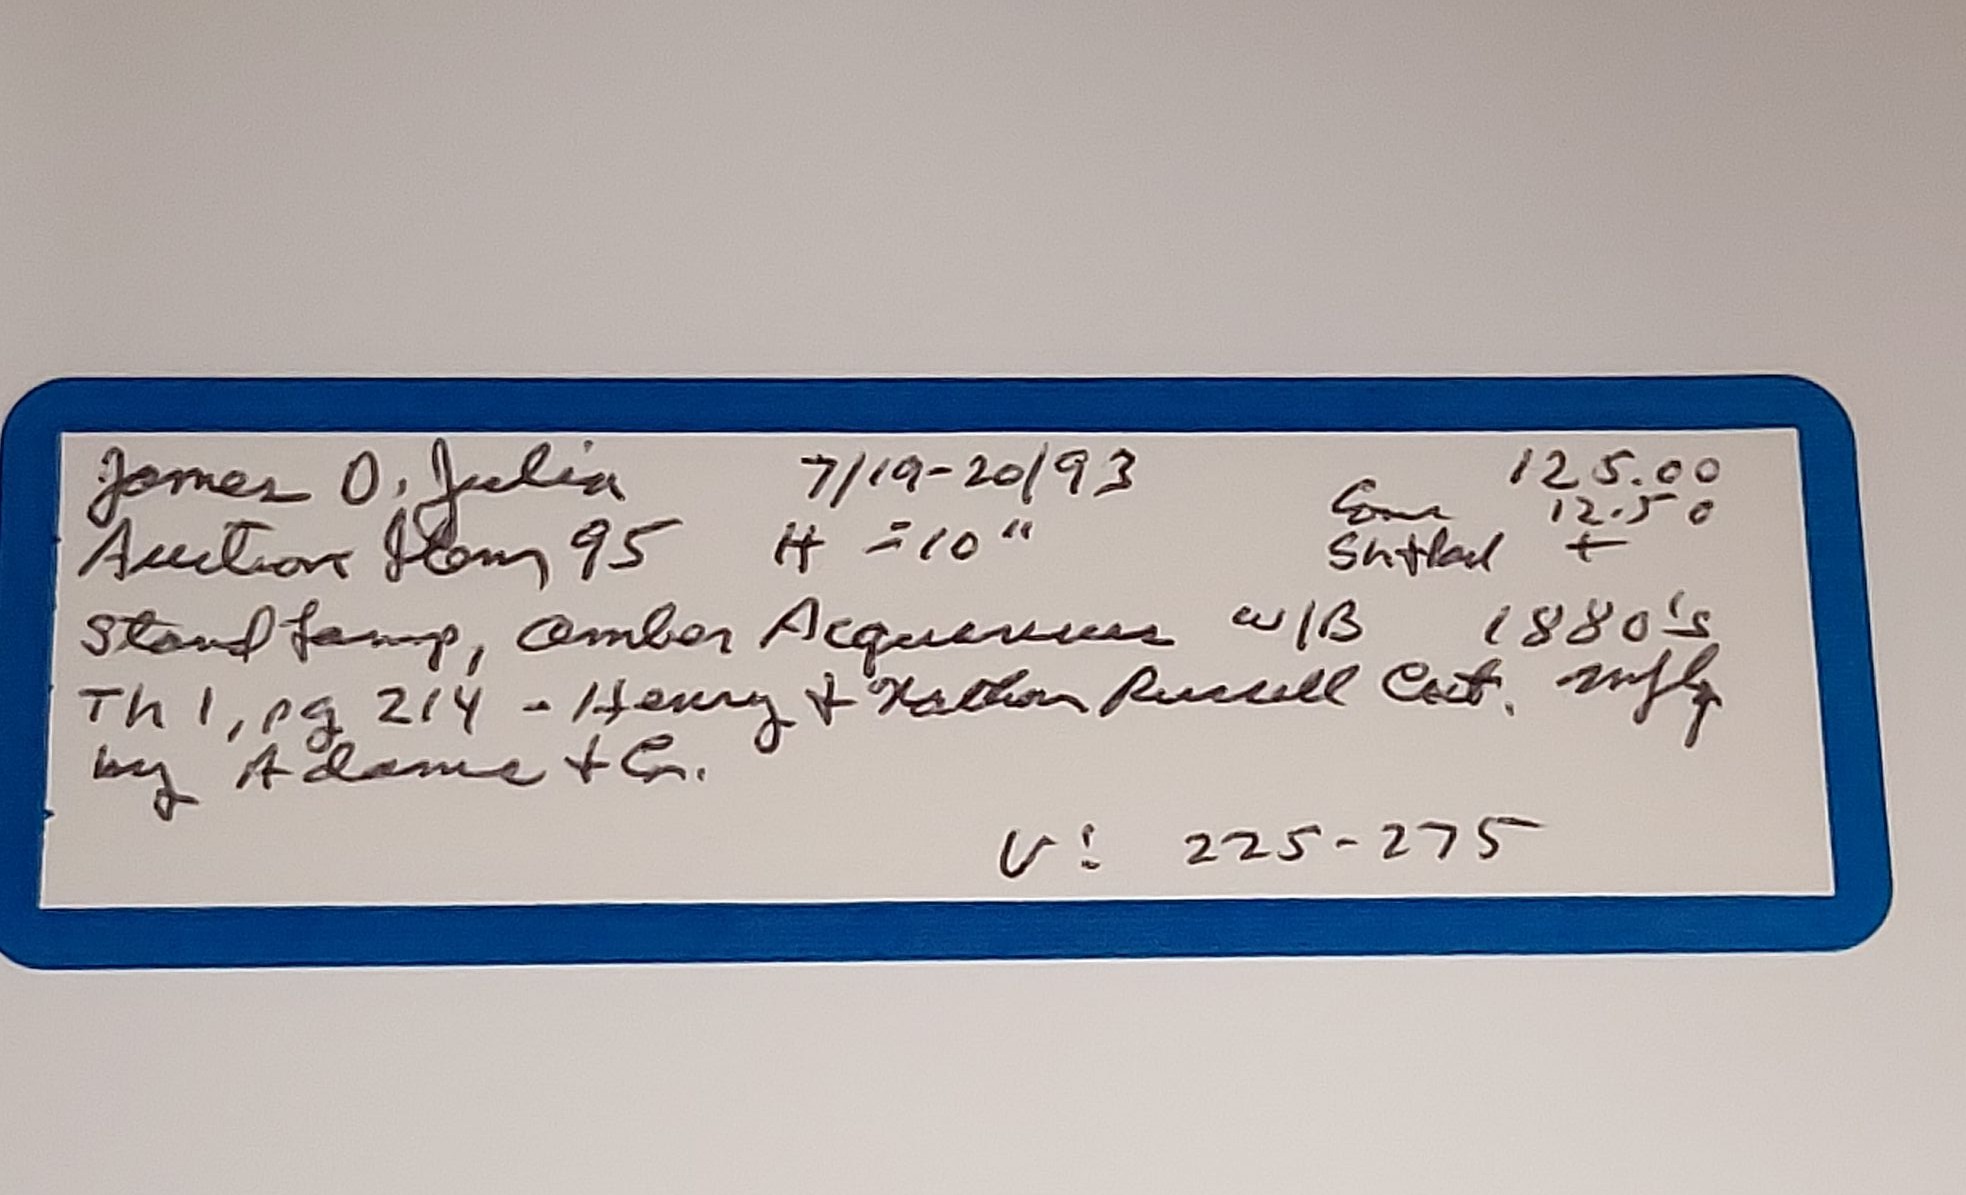 James O. Julia 7/19-20/93 125.00
Com 12.50
Auction Item 95 H = 10" +
Stand Lamp, amber Acquarius w/B 1880's
Th 1, pg 214 - Henry + Nathan Russell Cat. mfg
by Adams + Co.
V: 225-275